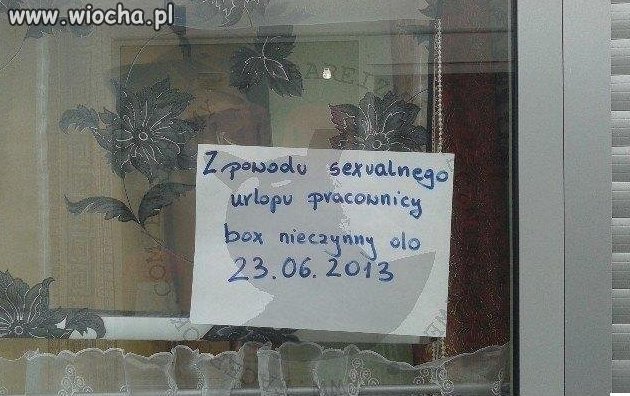 www.wiocha.pl
Z powodu sexualnego
urlopu pracownicy
box nieczynny do
23.06.2013